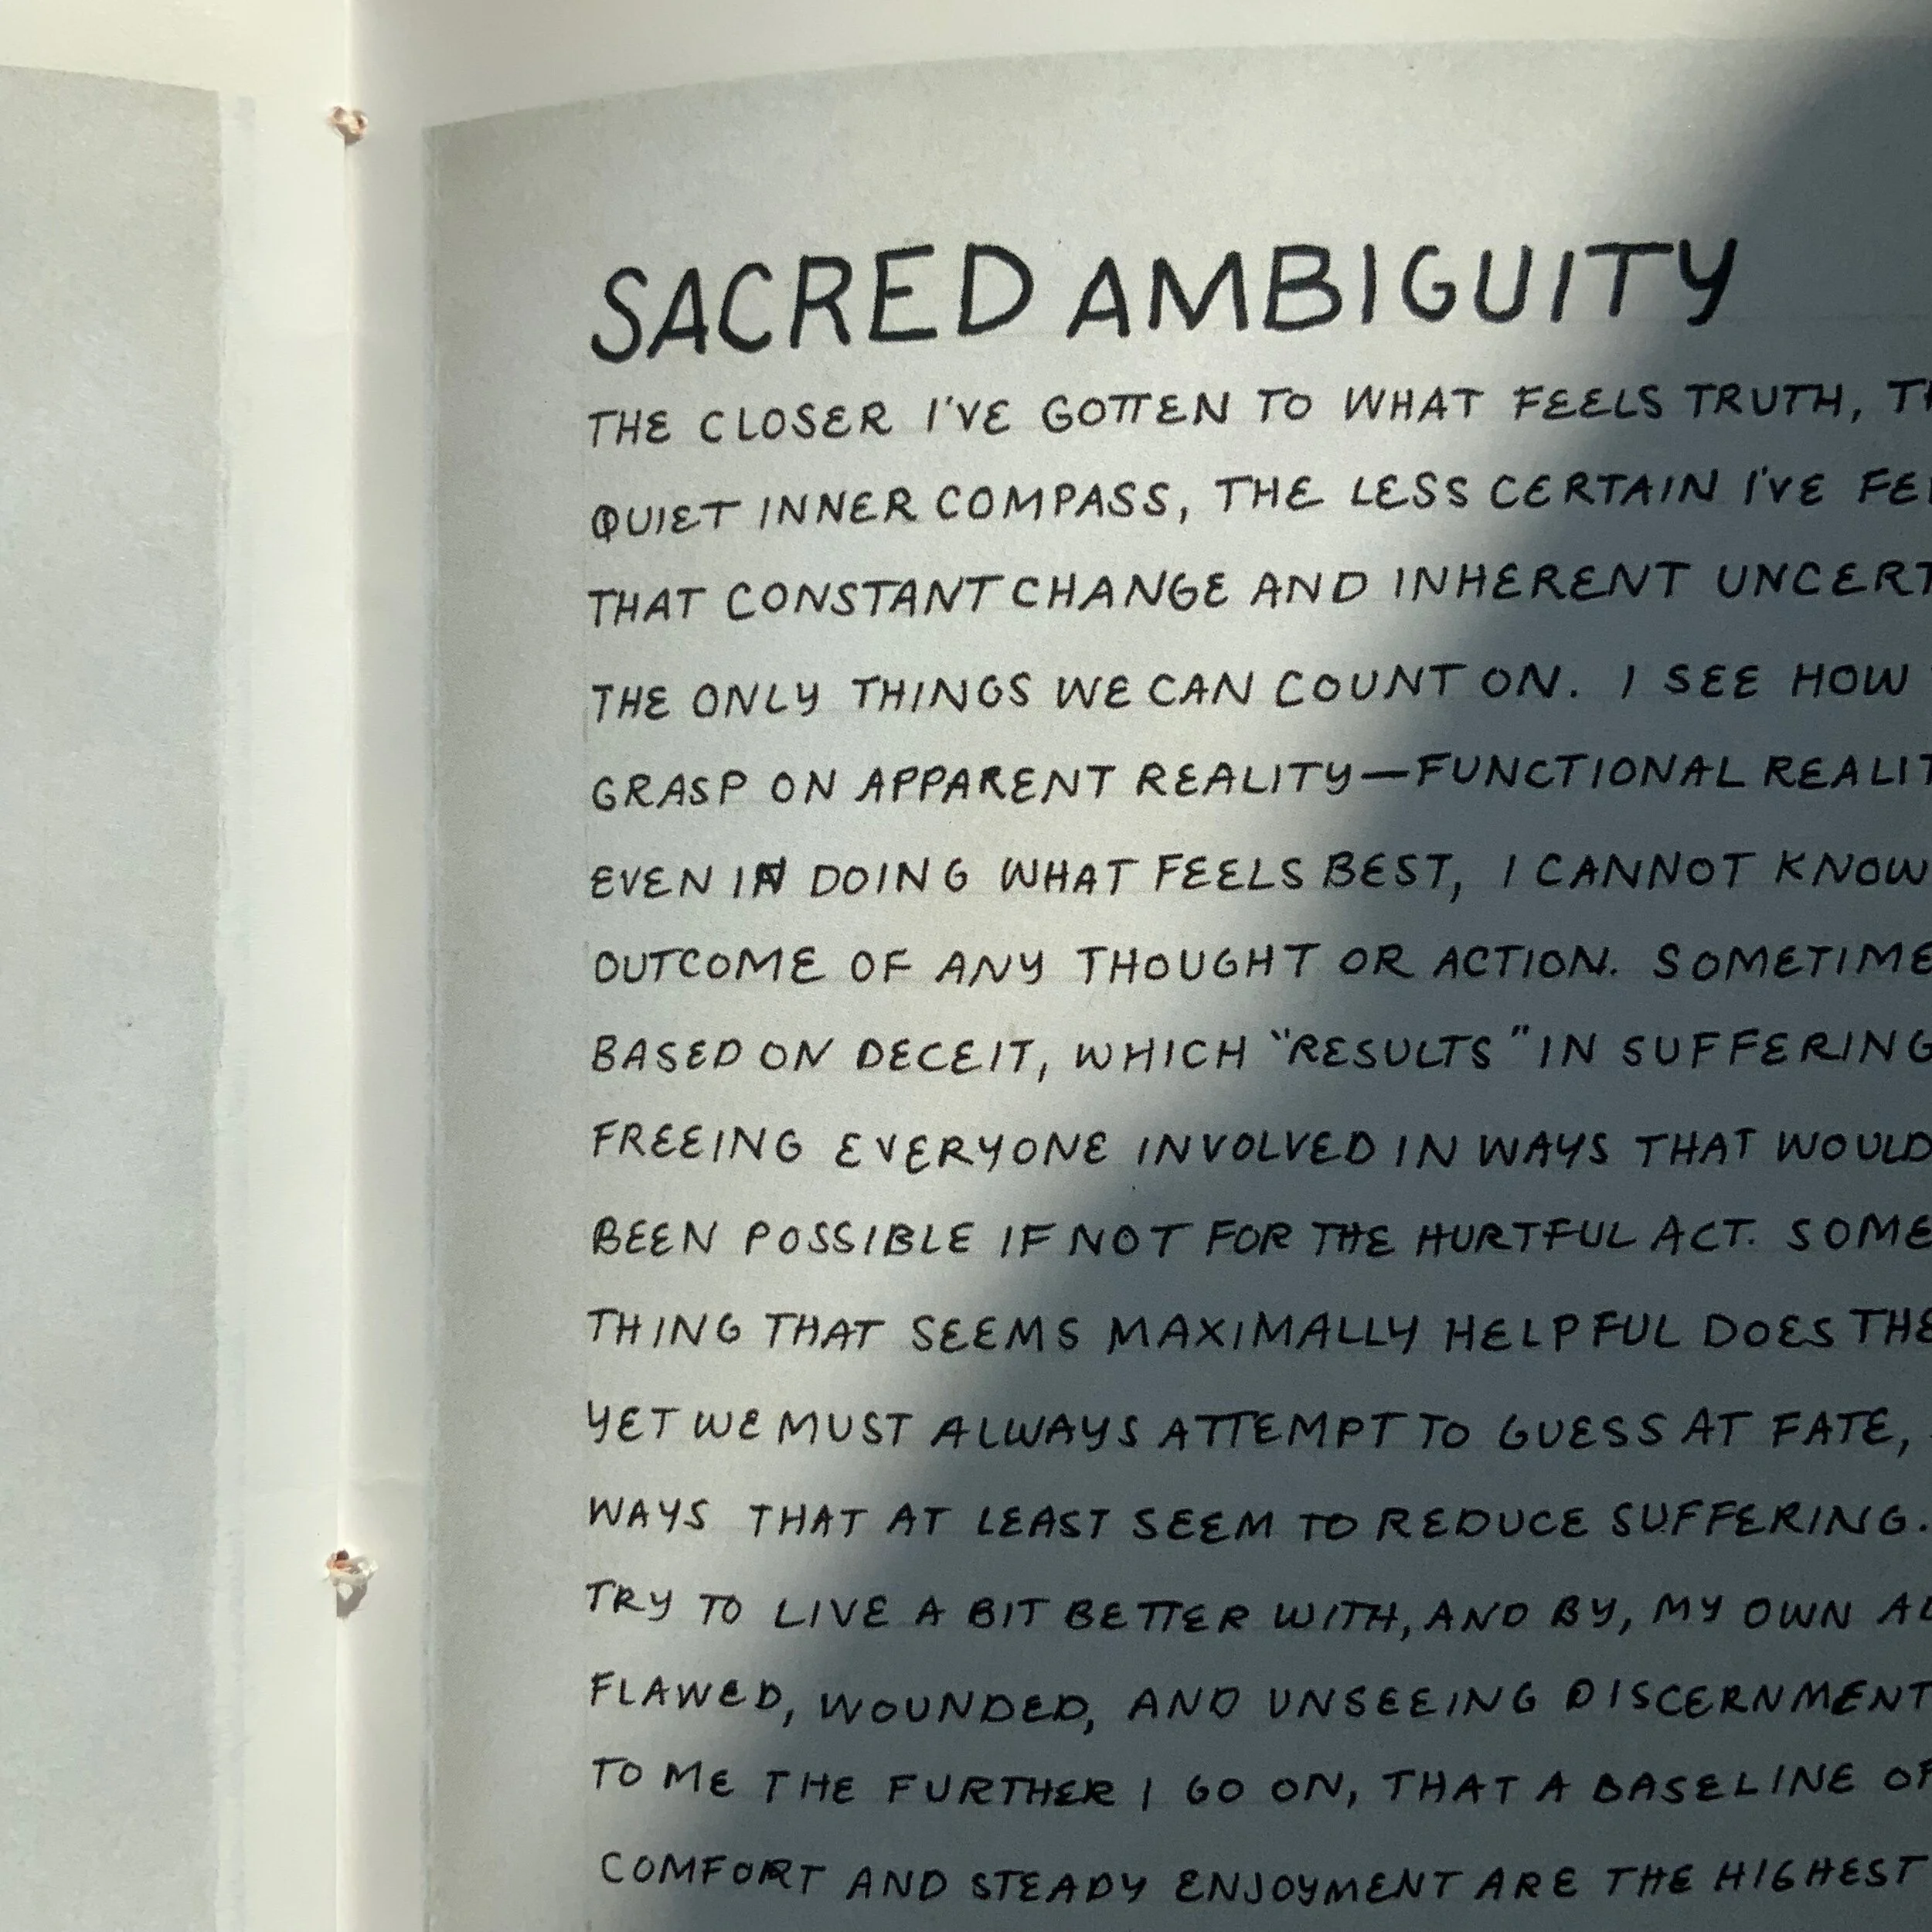 SACRED AMBIGUITY
THE CLOSER I'VE GOTTEN TO WHAT FEELS TRUTH,
QUIET INNER COMPASS, THE LESS CERTAIN I'VE
THAT CONSTANT CHANGE AND INHERENT
THE ONLY THINGS WE CAN COUNT ON. I SEE HOW
GRASP ON APPARENT REALITY—FUNCTIONAL
EVEN IN DOING WHAT FEELS BEST, I CANNOT KNOW
OUTCOME OF ANY THOUGHT OR ACTION.
BASED ON DECEIT, WHICH "RESULTS" IN SUFFERING
FREEING EVERYONE INVOLVED IN WAYS THAT WOULD
BEEN POSSIBLE IF NOT FOR THE HURTFUL ACT. SOME
THING THAT SEEMS MAXIMALLY HELPFUL DOES THE
YET WE MUST ALWAYS ATTEMPT TO GUESS AT FATE,
WAYS THAT AT LEAST SEEM TO REDUCE SUFFERING.
TRY TO LIVE A BIT BETTER WITH, AND BY, MY OWN
FLAWED, WOUNDED, AND UNSEEING DISCERNMENT
TO ME THE FURTHER I GO ON, THAT A BASELINE OF
COMFORT AND STEADY ENJOYMENT ARE THE HIGHEST